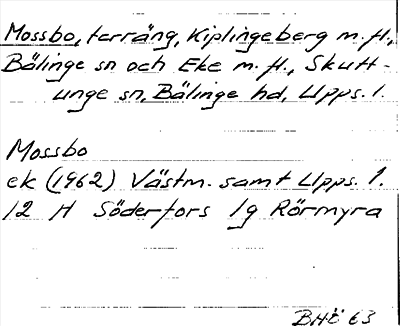 Mossbo, terräng, Kiplingeberg m. fl.,
Bälinge sn och Eke m. fl., Skutt-
unge sn, Bälinge hd, Upps. l.
Mossbo
ek (1962) Västm. samt Upps. l.
12 H Söderfors 1g Rörmyra
BHÖ 63